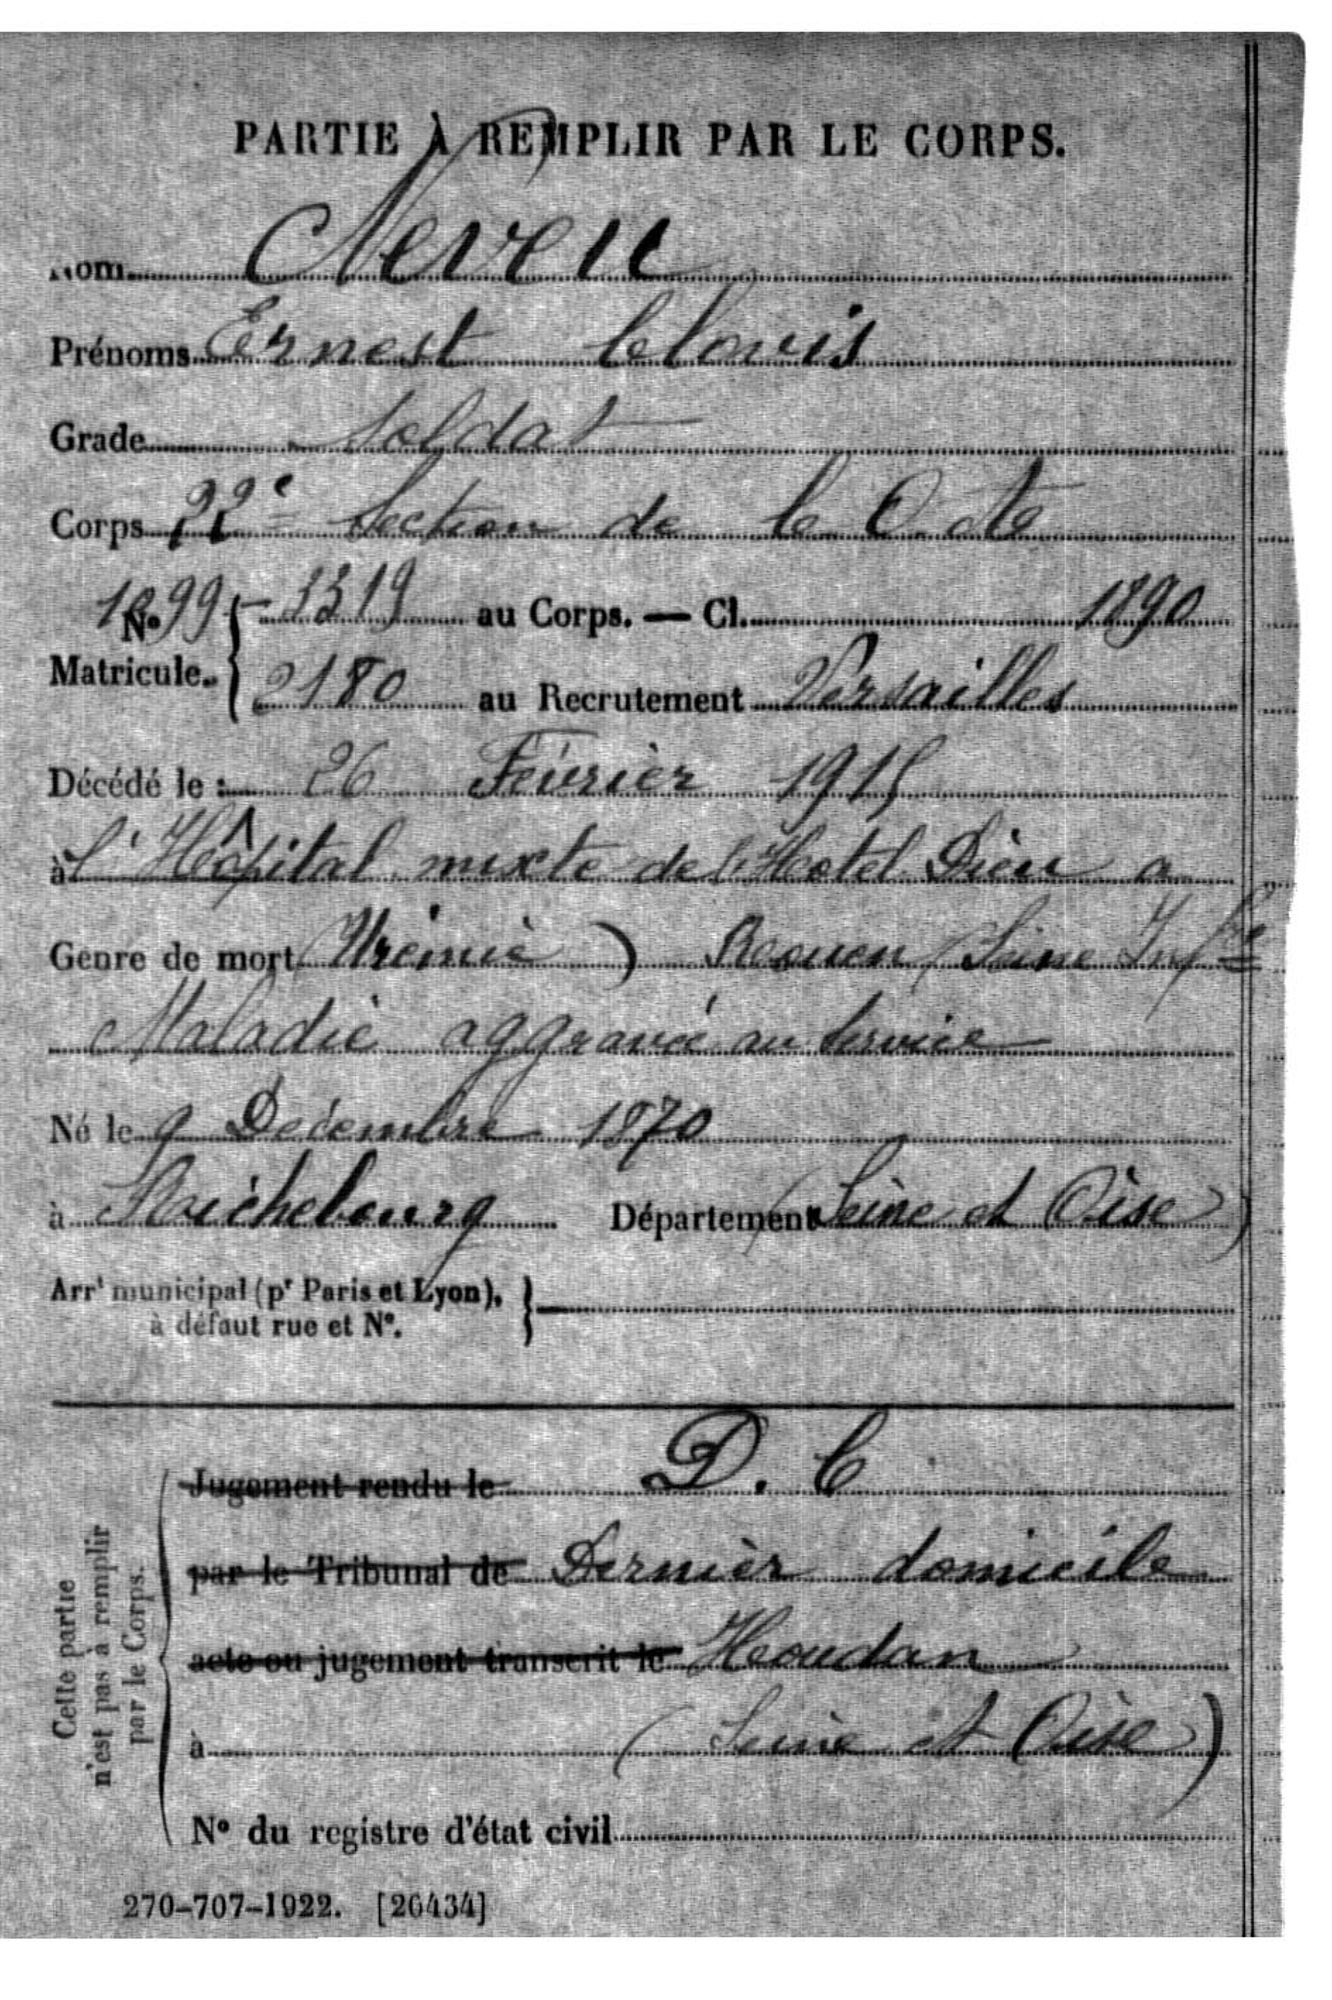 PARTIE À REMPLIR PAR LE CORPS.
Nom Neveu
Prénoms Ernest Clovis
Grade Soldat
Corps 22e Section de C. O. A
No Matricule. 1899 - 3319 au Corps. — Cl. 1890
2180 au Recrutement Versailles
Décédé le : 26 Février 1915
à l'Hôpital mixte de l'Hotel Dieu a
Genre de mort Urémie ) Rouen (Seine Infre
Maladie aggravée au service
Né le 9 Décembre 1870
à Richebourg Département (Seine et Oise)
Arrt municipal (pr Paris et Lyon),
à défaut rue et No.
Cette partie
n'est pas à remplir
par le Corps.
Jugement rendu le D. C
par le Tribunal de Dernier domicile
acte ou jugement transcrit le Houdan
à (Seine et Oise)
No du registre d'état civil
270-707-1922. [26434]